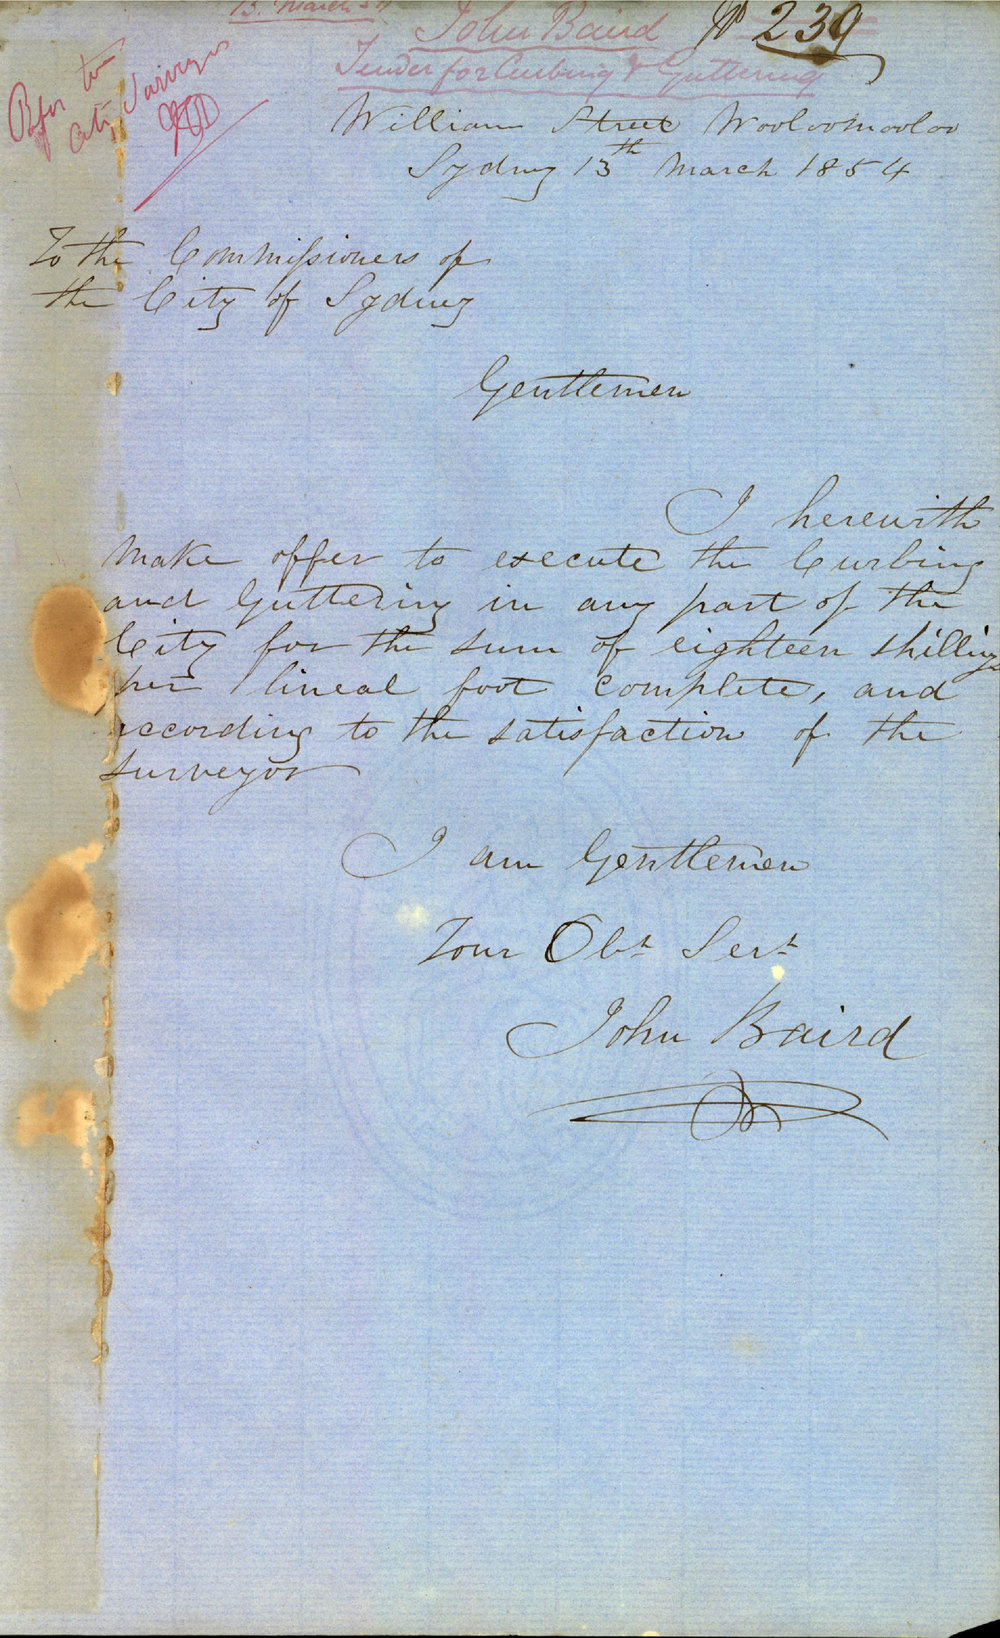 13. March 54
John Baird No 239
Tender for Curbing & Guttering
Refer to
City Surveyor
William Street Wooloomooloo
Sydney 13th March 1854
To the Commissioners of
the City of Sydney
Gentlemen
I herewith
make offer to execute the Curbing
and Guttering in any part of the
City for the sum of eighteen shillings
per lineal foot complete, and
according to the satisfaction of the
surveyor
I am Gentlemen
Your Obt Sert
John Baird